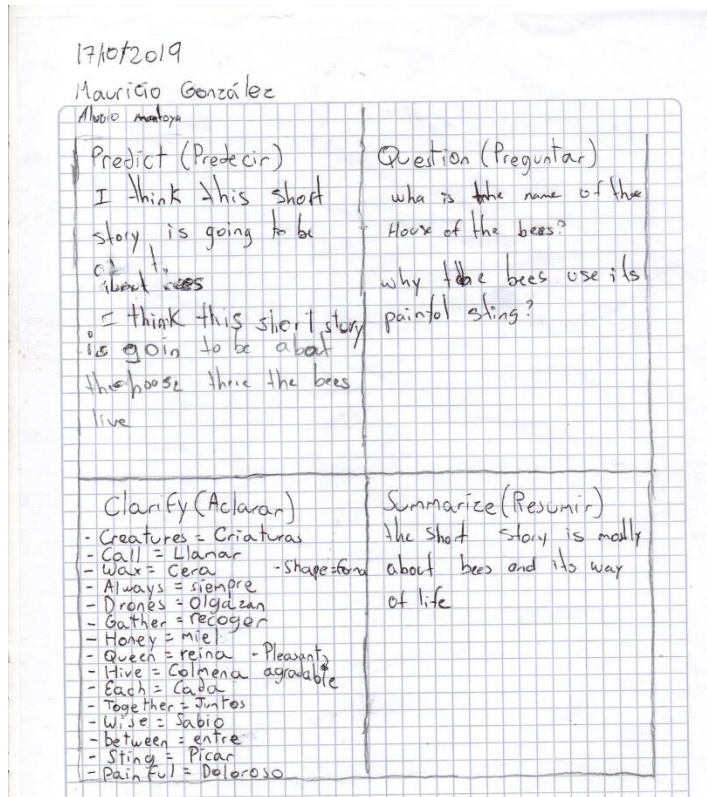 17/10/2019
Mauricio González
Predict (Predecir)
I think this short
story is going to be
about
I think this short story
is goin to be about
the hoose there the bees
live
Question (Preguntar)
wha is the name of the
House of the bees?
why the bees use its
painfol sting?
Clarify (Aclarar)
- Creatures = Criaturas
- Call = Llanar
- Wax = Cera - Shape = forma
- Always = siempre
- Drones = Olgazan
- Gather = recoger
- Honey = miel
- Queen = reina - Pleasant =
- Hive = Colmena agradable
- Each = Cada
- Together = Juntos
- Wise = Sabio
- between = entre
- Sting = Picar
- Painful = Doloroso
Summarize (Resumir)
the short story is mostly
about bees and its way
of life